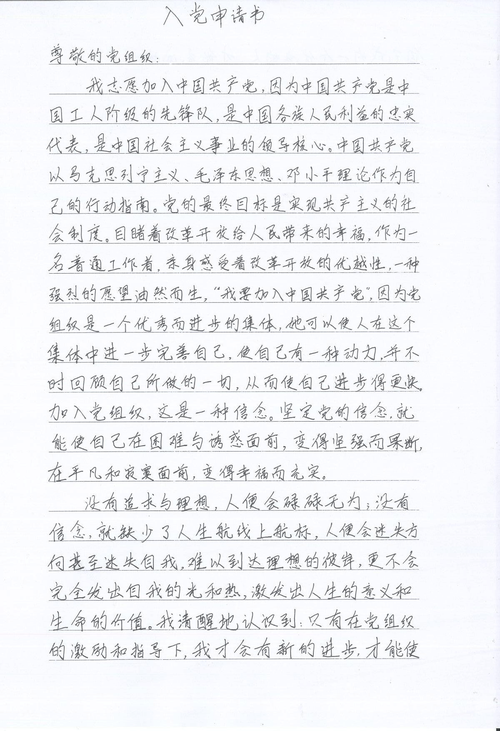 入党申请书
尊敬的党组织：
我志愿加入中国共产党，因为中国共产党是中
国工人阶级的先锋队，是中国各族人民利益的忠实
代表，是中国社会主义事业的领导核心。中国共产党
以马克思列宁主义、毛泽东思想、邓小平理论作为自
己的行动指南。党的最终目标是实现共产主义的社
会制度。目睹着改革开放给人民带来的幸福，作为一
名普通工作者，亲身感受着改革开放的优越性，一种
强烈的愿望油然而生，“我要加入中国共产党”，因为党
组织是一个优秀而进步的集体，她可以使人在这个
集体中进一步完善自己，使自己有一种动力，并不
时回顾自己所做的一切，从而使自己进步得更快。
加入党组织，这是一种信念。坚定党的信念，就
能使自己在困难与诱惑面前，变得坚强而果断，
在平凡和寂寞面前，变得幸福而充实。
没有追求与理想，人便会碌碌无为；没有
信念，就缺少了人生航线上航标，人便会迷失方
向甚至迷失自我，难以到达理想的彼岸，更不会
完全发出自我的光和热，激发出人生的意义和
生命的价值。我清醒地认识到：只有在党组织
的激励和指导下，我才会有新的进步，才能使